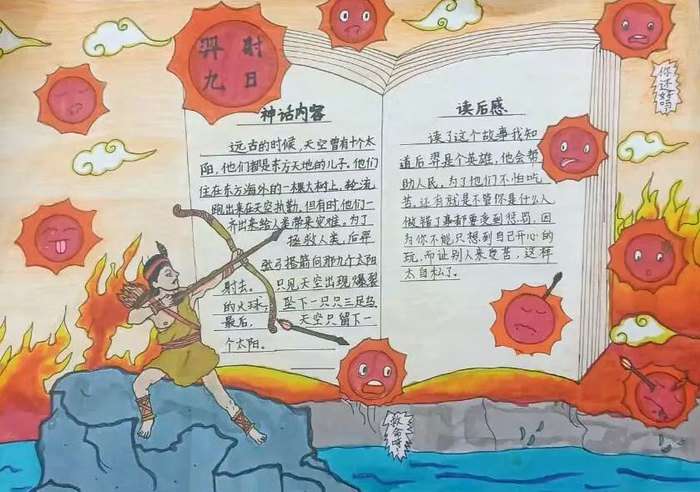 羿射
九日
神话内容
远古的时候,天空曾有十个太
阳,他们都是东方天地的儿子。他们
住在东方海外的一棵大树上,轮流
跑出来在天空执勤,但有时他们一
齐出来给人类带来灾难。为了
拯救人类,后羿
张弓搭箭向那九个太阳
射去。只见天空出现爆裂
的火球,坠下一只只三足乌,
最后,天空只留下一
个太阳。
读后感
读了这个故事我知
道后羿是个英雄,他会帮
助人民,为了他们不怕吃
苦。还有就是不管你是什么人
做错了事都要受到惩罚,因
为你不能只想到自己开心的
玩,而让别人来受苦,这样
太自私了。
你还好吗
救命呀